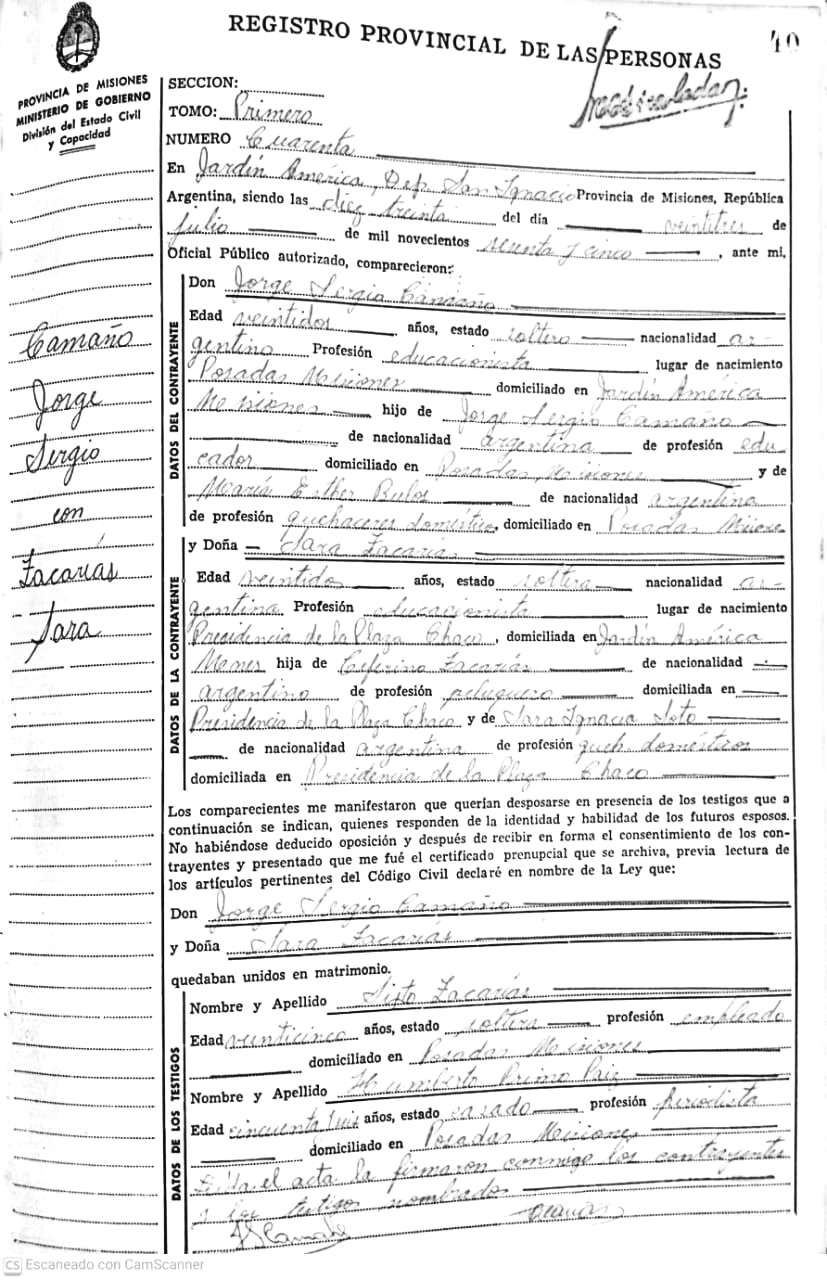 REGISTRO PROVINCIAL DE LAS PERSONAS
40
PROVINCIA DE MISIONES
MINISTERIO DE GOBIERNO
División del Estado Civil
y Capacidad
SECCION:
TOMO: Primero
NUMERO Cuarenta
En Jardín América, Dep. San Ignacio Provincia de Misiones, República
Argentina, siendo las diez treinta del día veintitres de
julio de mil novecientos sesenta y cinco, ante mi,
Oficial Público autorizado, comparecieron:
Camaño
Jorge
Sergio
con
Zacarías
Sara
DATOS DEL CONTRAYENTE
Don Jorge Sergio Camaño
Edad veintidos años, estado soltero nacionalidad ar-
gentino Profesión educacionista lugar de nacimiento
Posadas Misiones domiciliado en Jardín América
Misiones hijo de Jorge Sergio Camaño
de nacionalidad argentina de profesión edu
cador domiciliado en Posadas, Misiones y de
María Esther Bulos de nacionalidad argentina
de profesión quehaceres doméstico, domiciliado en Posadas Misiones
DATOS DE LA CONTRAYENTE
y Doña Sara Zacarías
Edad veintidos años, estado soltera nacionalidad ar-
gentina Profesión educacionista lugar de nacimiento
Presidencia de la Plaza Chaco, domiciliada en Jardín América
hija de Ceferino Zacarías de nacionalidad
argentino de profesión peluquero domiciliado en
Presidencia de la Plaza Chaco y de Sara Ignacia Soto
de nacionalidad argentina de profesión queh. domésticos
domiciliada en Presidencia de la Plaza Chaco
Los comparecientes me manifestaron que querían desposarse en presencia de los testigos que a
continuación se indican, quienes responden de la identidad y habilidad de los futuros esposos.
No habiéndose deducido oposición y después de recibir en forma el consentimiento de los con-
trayentes y presentado que me fué el certificado prenupcial que se archiva, previa lectura de
los artículos pertinentes del Código Civil declaré en nombre de la Ley que:
Don Jorge Sergio Camaño
y Doña Sara Zacarías
quedaban unidos en matrimonio.
DATOS DE LOS TESTIGOS
Nombre y Apellido Sixto Zacarías
Edad veinticinco años, estado soltero profesión empleado
domiciliado en Posadas Misiones
Nombre y Apellido Humberto Primo Paiz
Edad cincuenta años, estado casado profesión periodista
domiciliado en Posadas Misiones
Leída el acta la firmaron conmigo los contrayentes
y los testigos nombrados
CS Escaneado con CamScanner